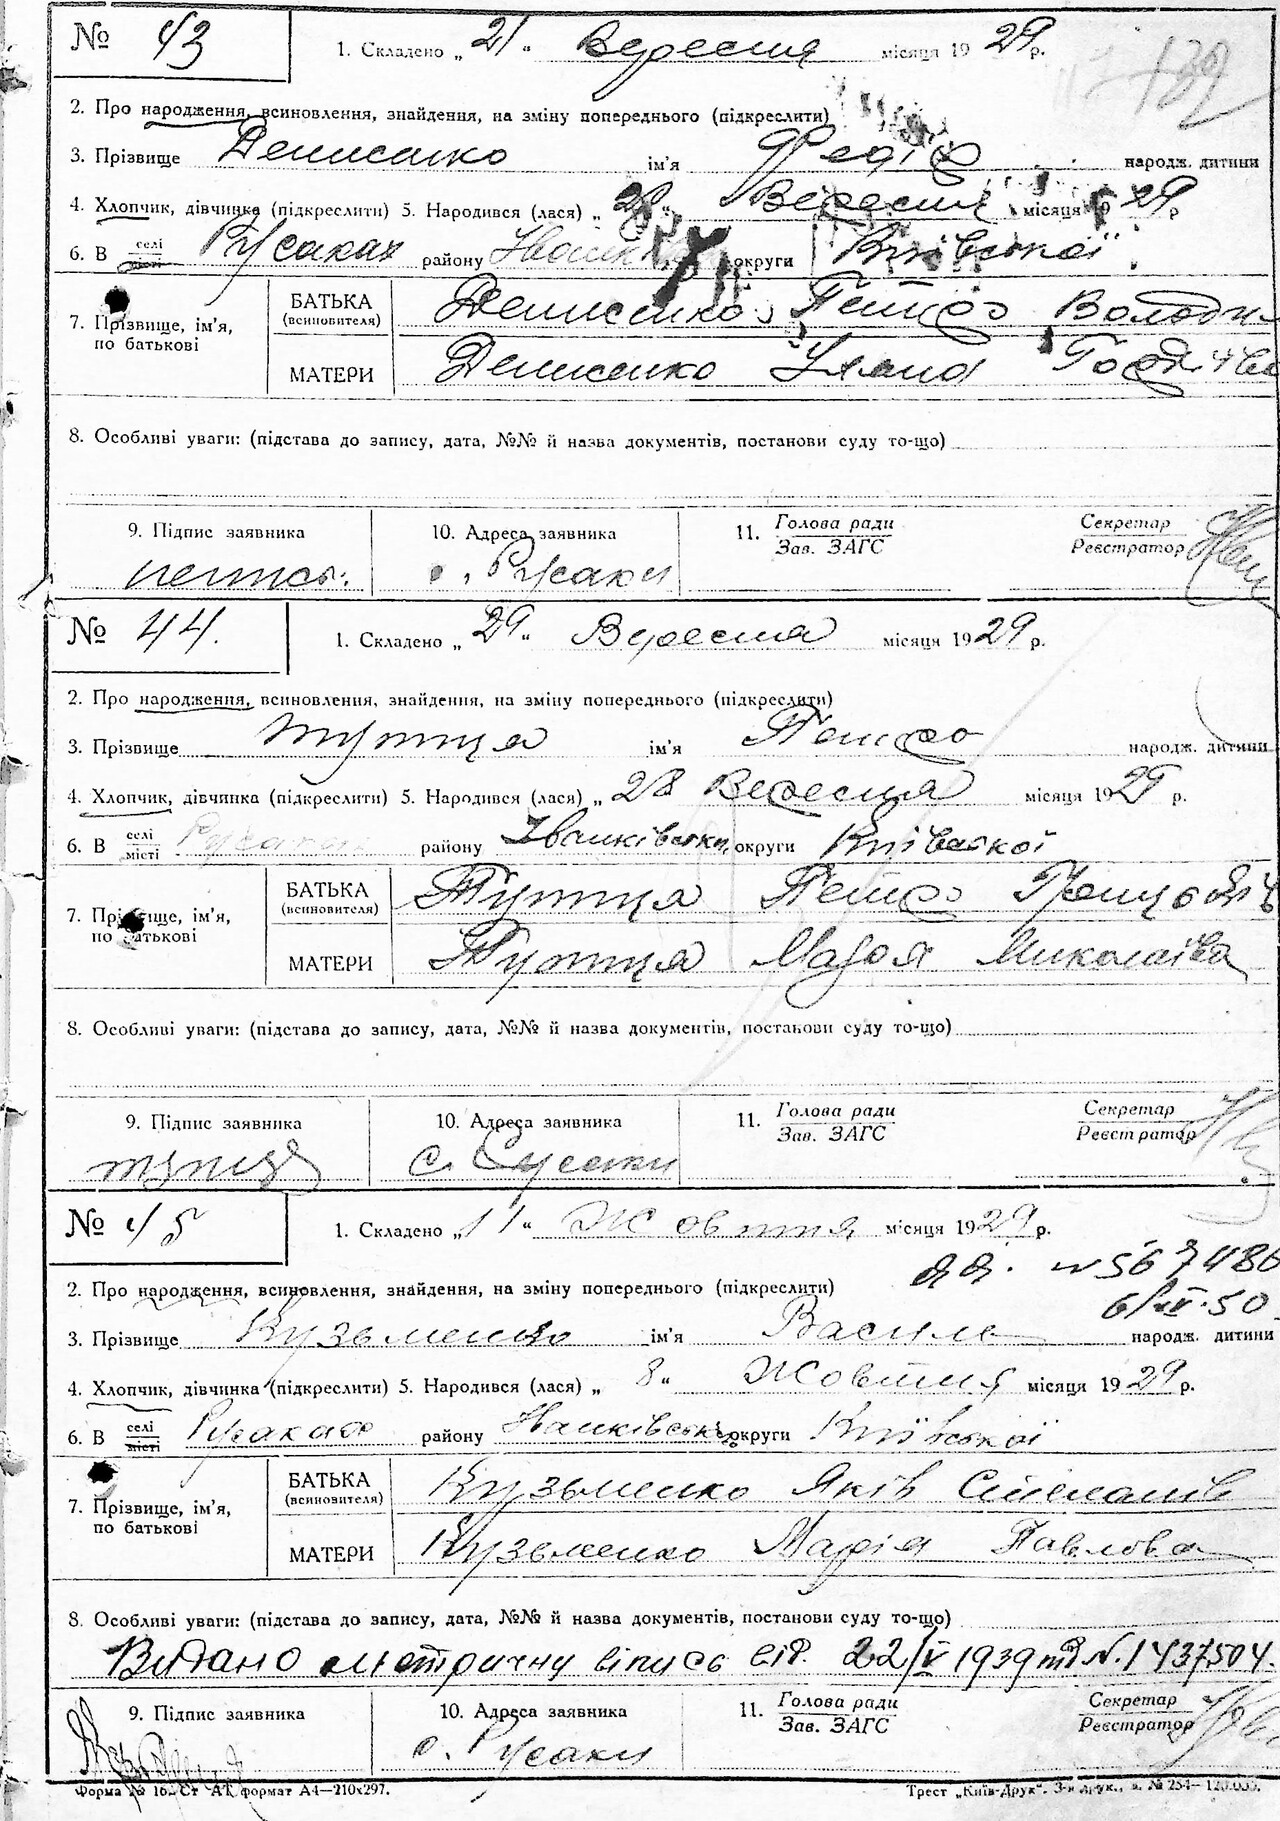 № 43 1. Складено „ 21 “ Вересня місяця 1929 р.
2. Про народження, всиновлення, знайдення, на зміну попереднього (підкреслити)
3. Прізвище Денисенко ім'я Федір народж. дитини
4. Хлопчик, дівчинка (підкреслити) 5. Народився (лася) „ 20 “ Вересня місяця 1929 р
6. В селі місті Русаках району округи Київської
7. Прізвище, ім'я, по батькові БАТЬКА (всиновителя) Денисенко Петро Володи
МАТЕРИ Денисенко Уляна
8. Особливі уваги: (підстава до запису, дата, №№ й назва документів, постанови суду то-що)
9. Підпис заявника 10. Адреса заявника 11. Голова ради Зав. ЗАГС Секретар Реєстратор
с. Русаки
№ 44. 1. Складено „ 29 “ Вересня місяця 1929 р.
2. Про народження, всиновлення, знайдення, на зміну попереднього (підкреслити)
3. Прізвище Тупиця ім'я Петро народж. дитини
4. Хлопчик, дівчинка (підкреслити) 5. Народився (лася) „ 28 Вересня місяця 1929 р.
6. В селі місті Русаках району Іванківськ округи Київської
7. Прізвище, ім'я, по батькові БАТЬКА (всиновителя) Тупиця Петро
МАТЕРИ Тупиця Марія Миколаївна
8. Особливі уваги: (підстава до запису, дата, №№ й назва документів, постанови суду то-що)
9. Підпис заявника 10. Адреса заявника 11. Голова ради Зав. ЗАГС Секретар Реєстратор
Тупиця с. Русаки
№ 45 1. Складено „ 11 “ Жовтня місяця 1929 р.
N 567486
2. Про народження, всиновлення, знайдення, на зміну попереднього (підкреслити)
3. Прізвище Кузьменко ім'я Василь народж. дитини
4. Хлопчик, дівчинка (підкреслити) 5. Народився (лася) „ 8 “ Жовтня місяця 1929 р.
6. В селі місті Русаках району Іванківськ округи Київської
7. Прізвище, ім'я, по батькові БАТЬКА (всиновителя) Кузьменко Яків Степанів
МАТЕРИ Кузьменко Марія Павлова
8. Особливі уваги: (підстава до запису, дата, №№ й назва документів, постанови суду то-що)
Видано метричну випись від. 22/V 1939 N. 1437504.
9. Підпис заявника 10. Адреса заявника 11. Голова ради Зав. ЗАГС Секретар Реєстратор
с. Русаки
Форма № 16. Ст А4 формат А4—210х297. Трест „Київ-Друк“. 3-я друк., з. № 254—